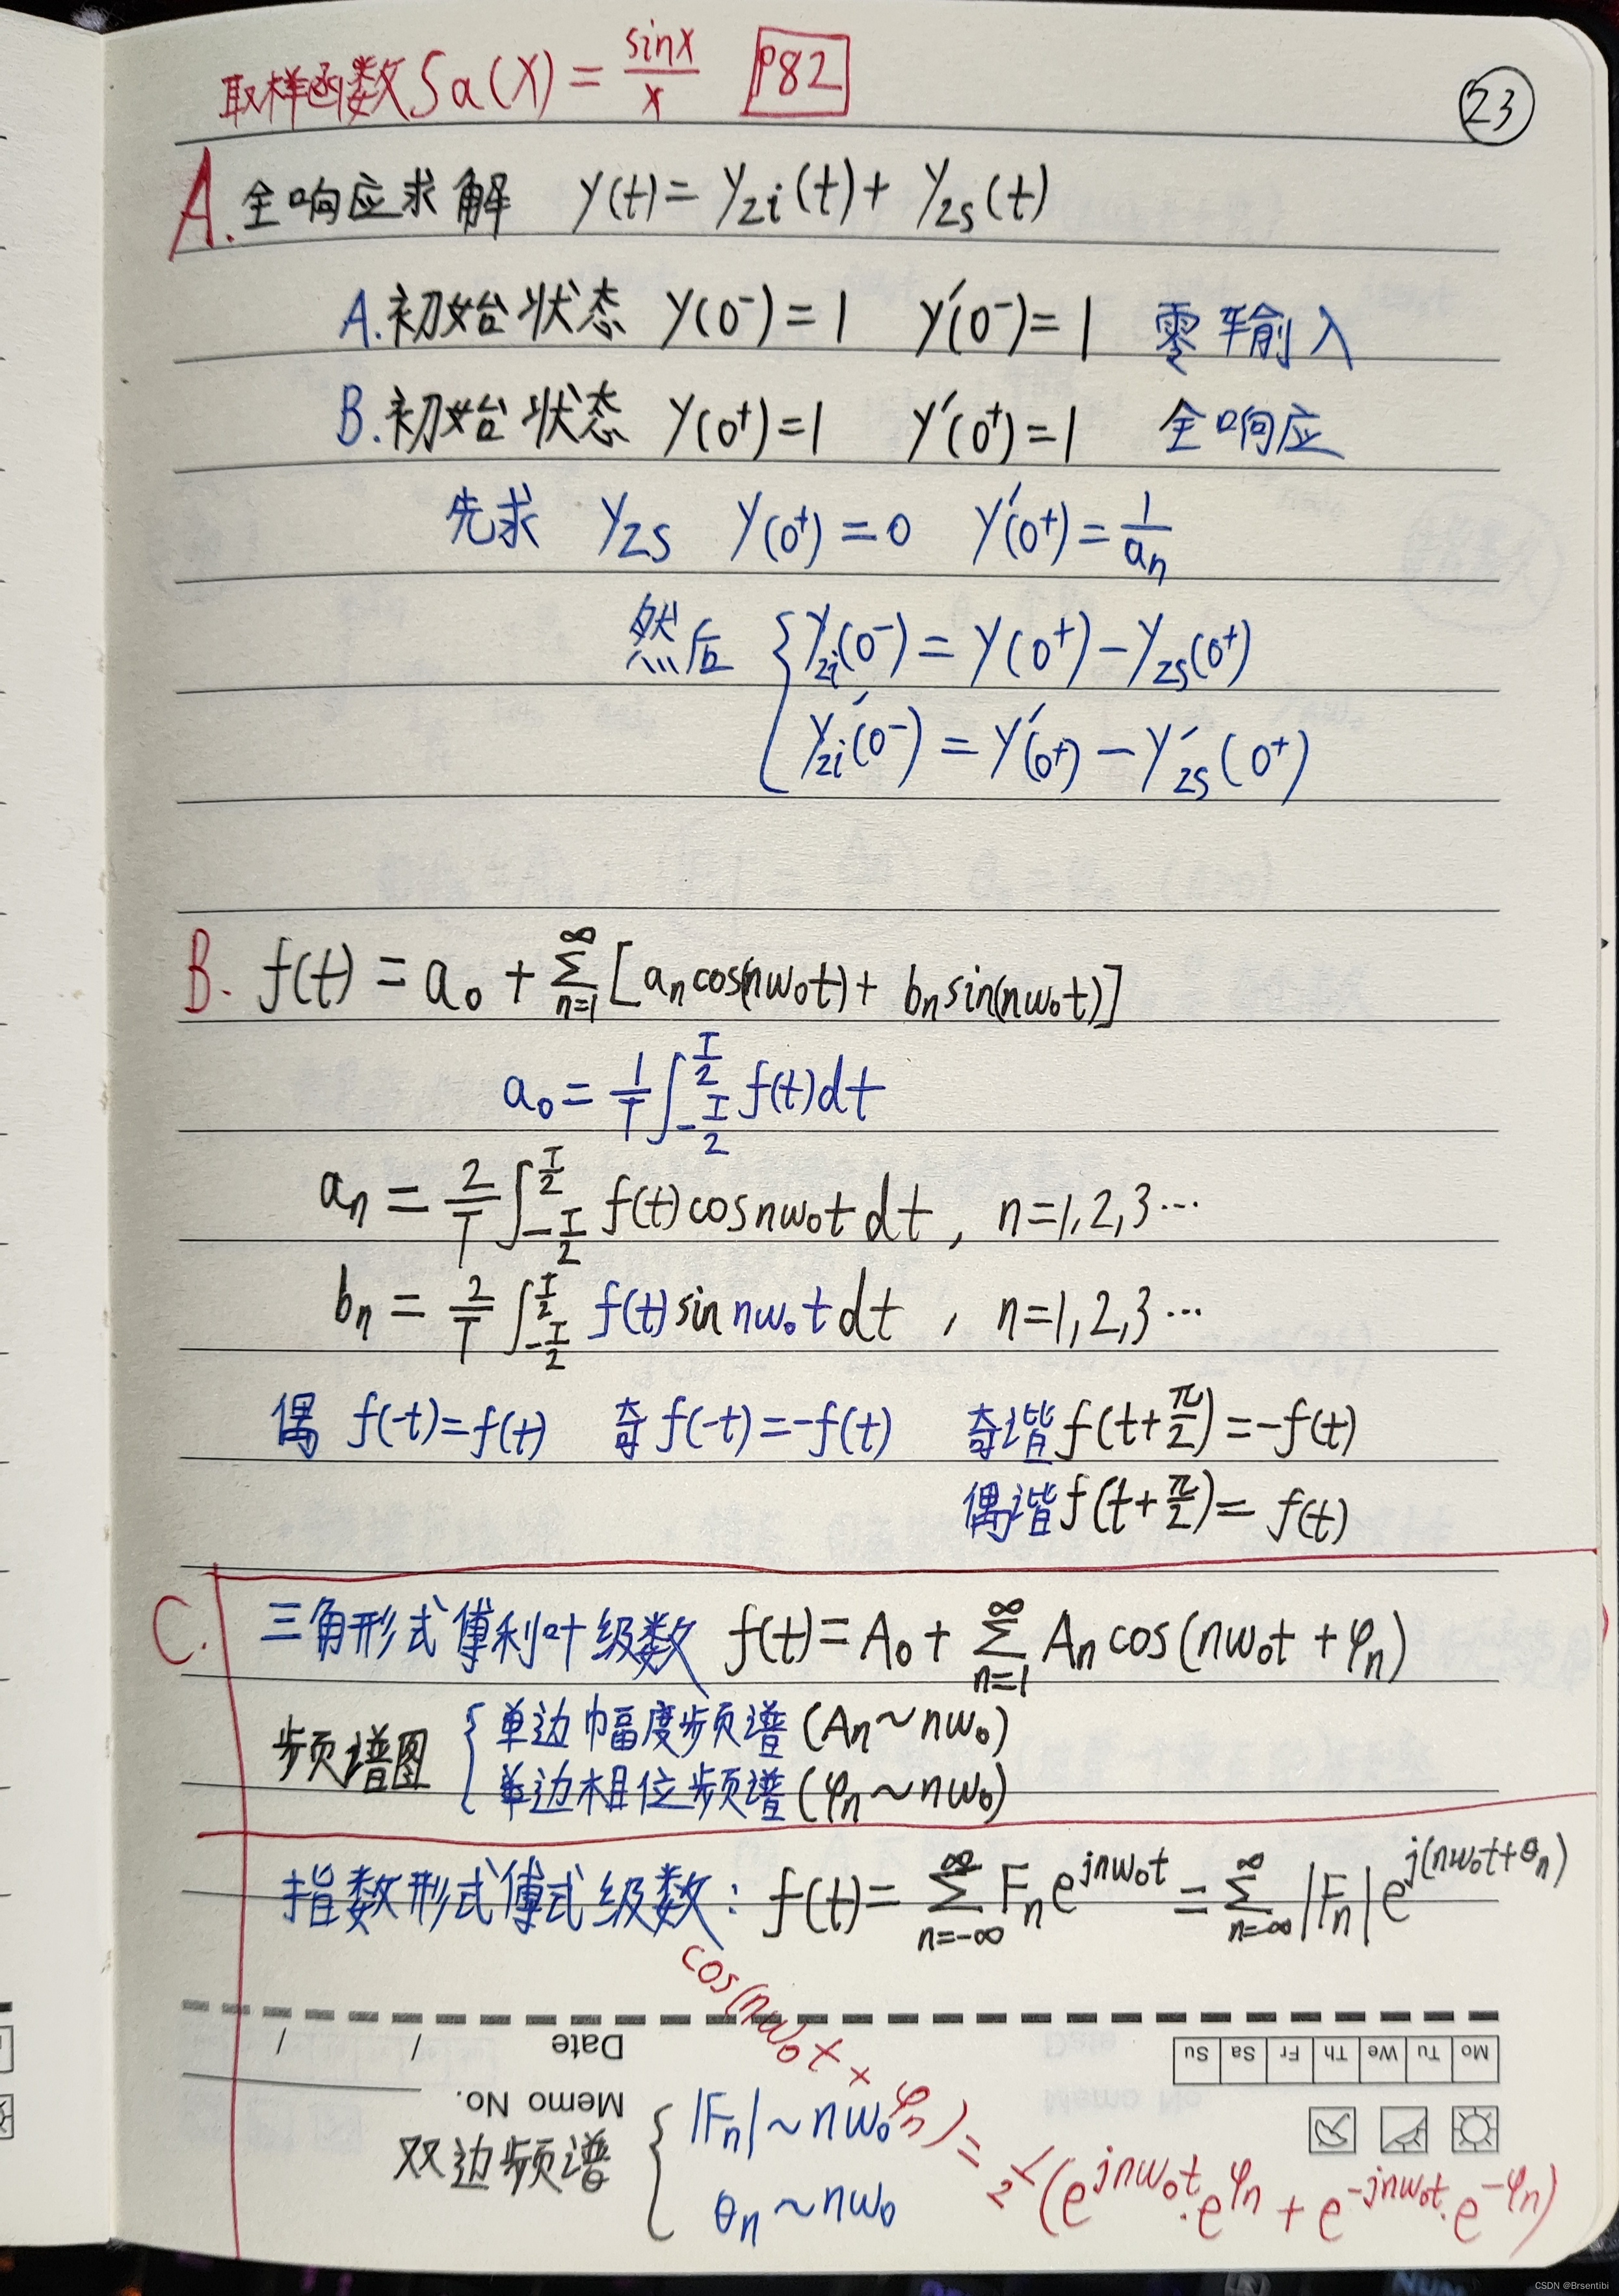 取样函数Sa(x) = sinx/x P82
23
A. 全响应求解 y(t) = y_zi(t) + y_zs(t)
A. 初始状态 y(0⁻) = 1 y′(0⁻) = 1 零输入
B. 初始状态 y(0⁺) = 1 y′(0⁺) = 1 全响应
先求 y_zs y(0⁺) = 0 y′(0⁺) = 1/a_n
然后 { y_zi(0⁻) = y(0⁺) − y_zs(0⁺)
y_zi′(0⁻) = y′(0⁺) − y′_zs(0⁺)
B. f(t) = a₀ + Σ_{n=1}^{∞} [a_n cos(nw₀t) + b_n sin(nw₀t)]
a₀ = 1/T ∫_{-T/2}^{T/2} f(t)dt
a_n = 2/T ∫_{-T/2}^{T/2} f(t)cosnw₀t dt, n=1,2,3…
b_n = 2/T ∫_{-T/2}^{T/2} f(t)sin nw₀t dt, n=1,2,3…
偶 f(-t)=f(t) 奇 f(-t)=-f(t) 奇谐 f(t+π/2)=-f(t)
偶谐 f(t+π/2)= f(t)
C. 三角形式傅利叶级数 f(t)=A₀+ Σ_{n=1}^{∞} A_n cos(nw₀t+φ_n)
频谱图 { 单边幅度频谱 (A_n~nw₀)
单边相位频谱 (φ_n~nw₀)
指数形式傅式级数: f(t)= Σ_{n=-∞}^{∞} F_n e^{jnw₀t} = Σ_{n=-∞}^{∞} |F_n| e^{j(nw₀t+θ_n)}
cos(nw₀t+φ_n) = 1/2(e^{jnw₀t}·e^{φ_n} + e^{-jnw₀t}·e^{-φ_n})
Date / /
Mo Tu We Th Fr Sa Su
Memo No.
双边频谱 { |F_n|~nw₀
θ_n~nw₀
CSDN @Brsentibi